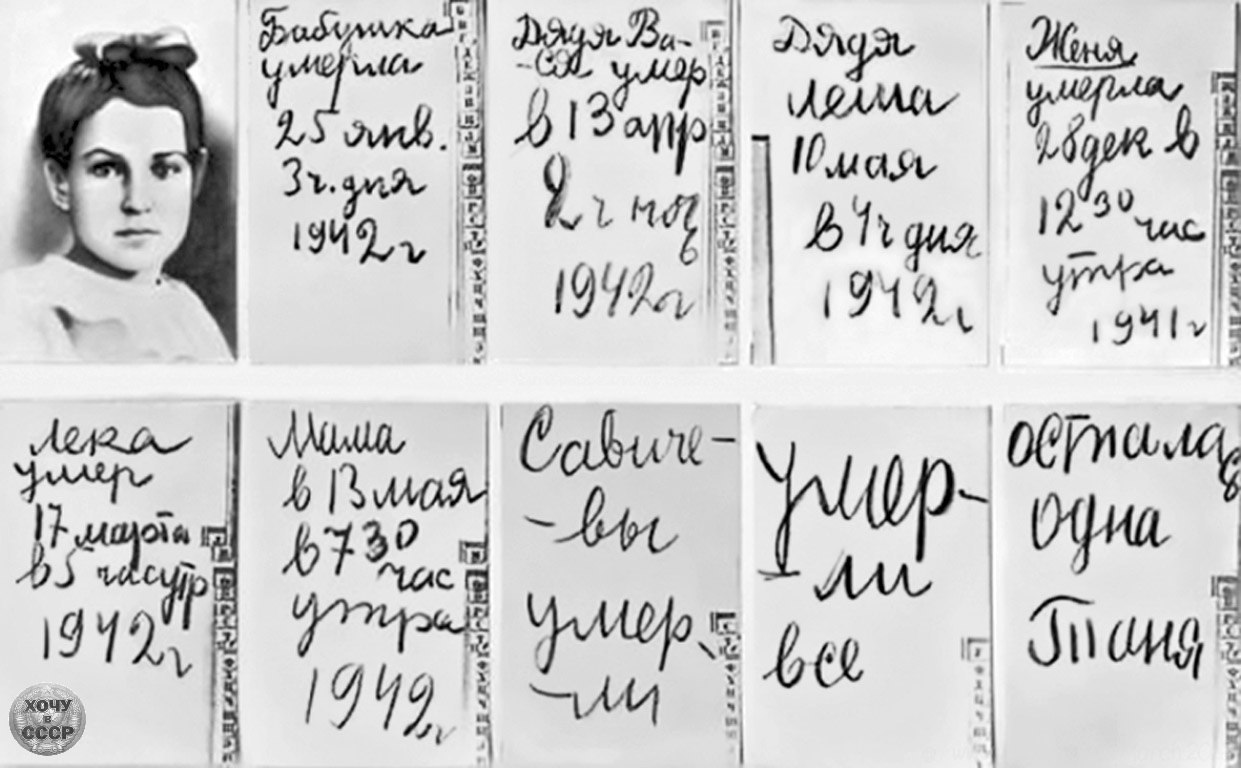 Бабушка
умерла
25 янв.
3 ч. дня
1942 г
Дядя Ва-
-ся умер
в 13 апр
2 ч ноч
ь
1942 г
Дядя
Леша
10 мая
в 4 ч дня
1942 г
Женя
умерла
28 дек в
12 30 час
утра
1941 г
Лека
умер
17 марта
в 5 час утр
1942 г
Мама
в 13 мая
в 7 30
час
утра
1942 г
Савиче-
-вы
умер
-ли
умер-
-ли
все
осталас
ь
одна
Таня
ХОЧУ
в
СССР